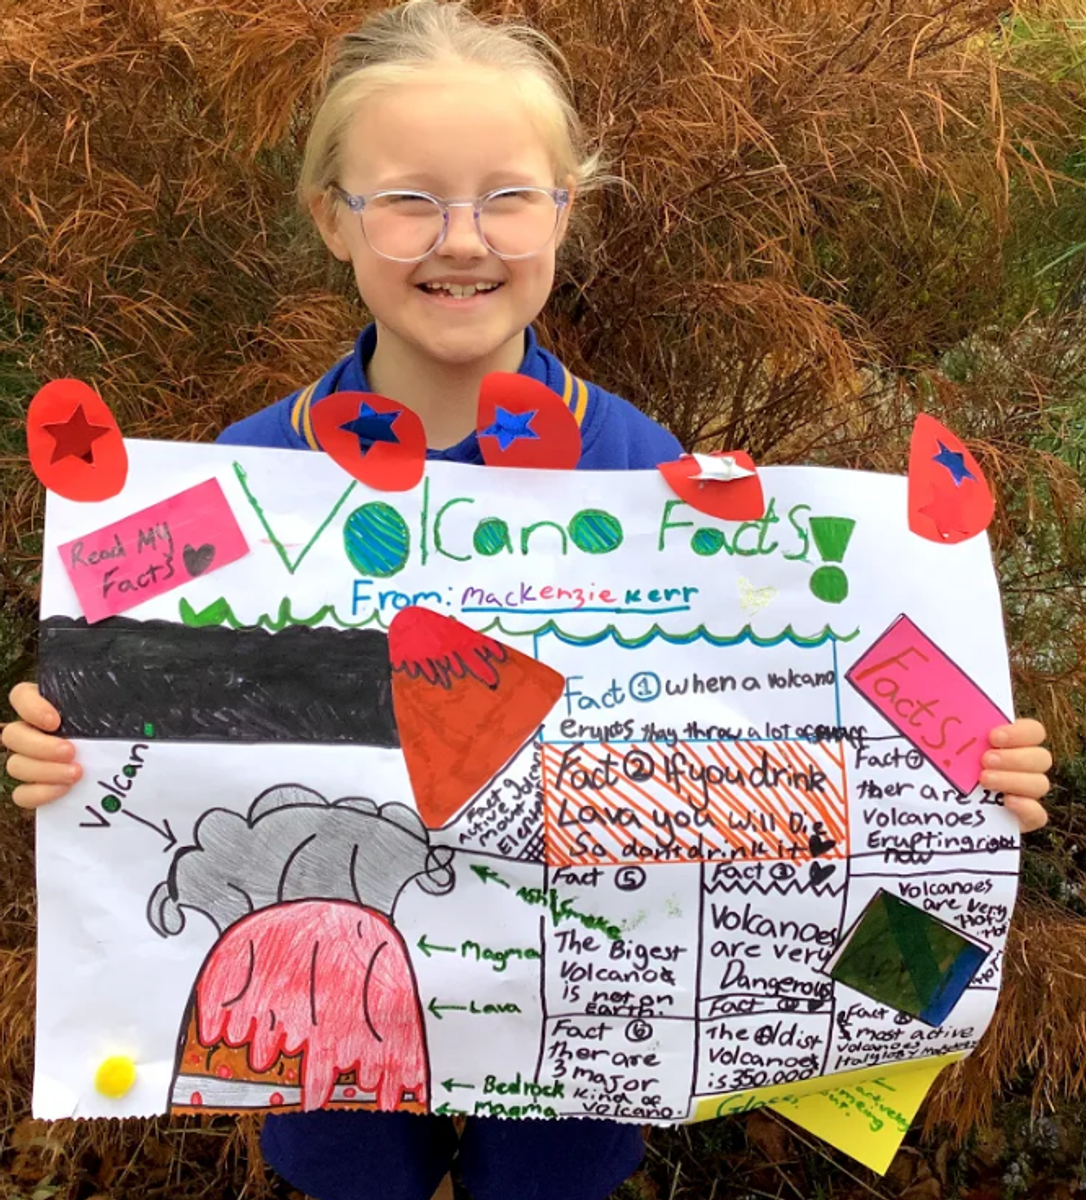 Volcano Facts!
Read My
Facts
From: Mackenzie Kerr
Facts!
Fact 1 when a volcano
erupts thay throw a lot of
Fact 2 If you drink
Lava you will Die
So dont drink it
Fact 3
Volcanoes
are very
Dangerous
Fact
The Oldist
Volcanoes
is 350,000
Fact 5
The Biggest
Volcanoe
is not on
Earth.
Fact 6
ther are
3 major
kind of
Volcano.
Fact 7
ther are
Volcanoes
Erupting right
now
Volcanoes
are very
Hot
Fact
5 most active
volcanoes
Fact 9
Active volcano
mount
Volcan
Ash/Smoke
Magma
Lava
Bedrock
Magma